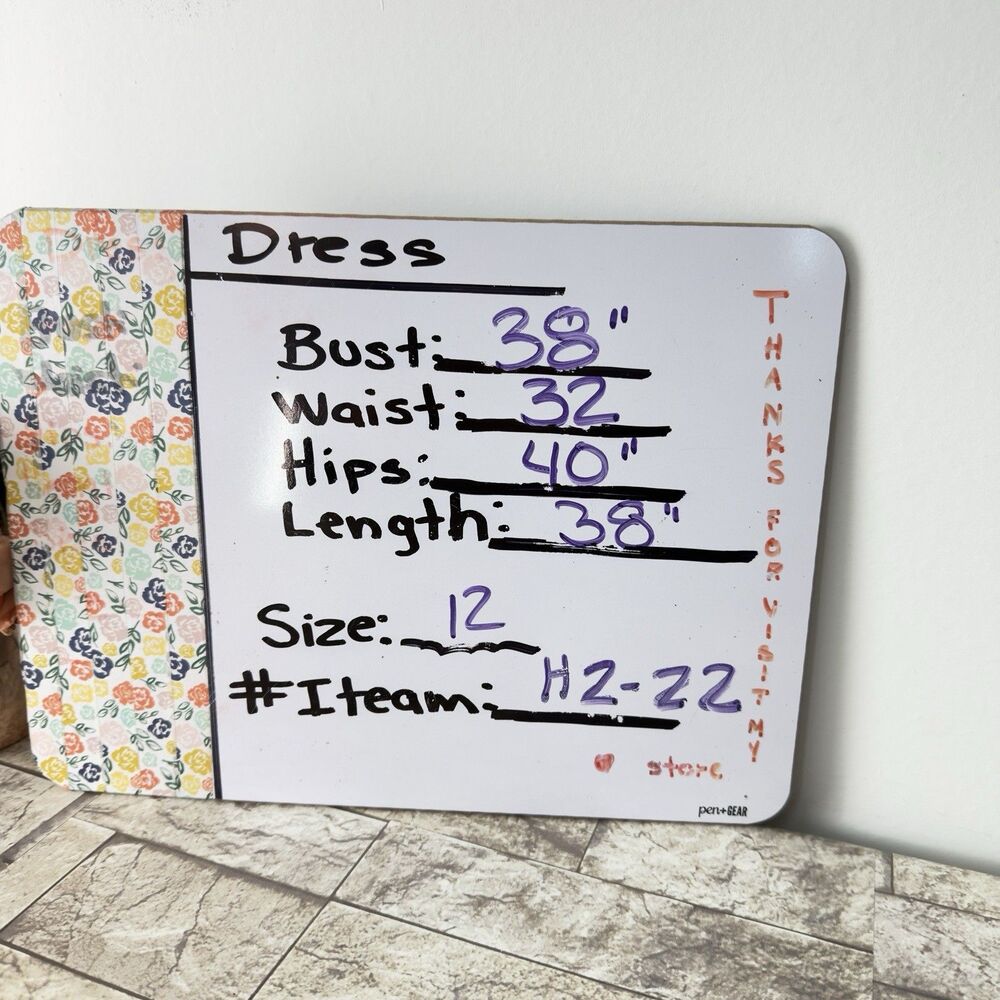 Dress
Bust: 38"
Waist: 32
Hips: 40"
Length: 38"
Size: 12
#Iteam: H2-22
THANKS FOR VISIT MY
store
pen+GEAR